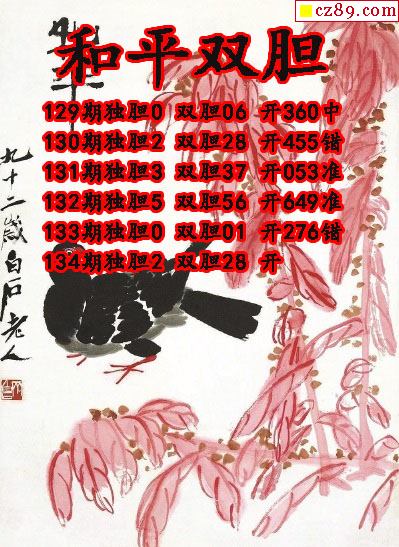 cz89.com
和平双胆
129期独胆0 双胆06 开360中
130期独胆2 双胆28 开455错
131期独胆3 双胆37 开053准
132期独胆5 双胆56 开649准
133期独胆0 双胆01 开276错
134期独胆2 双胆28 开
九十二岁白石老人